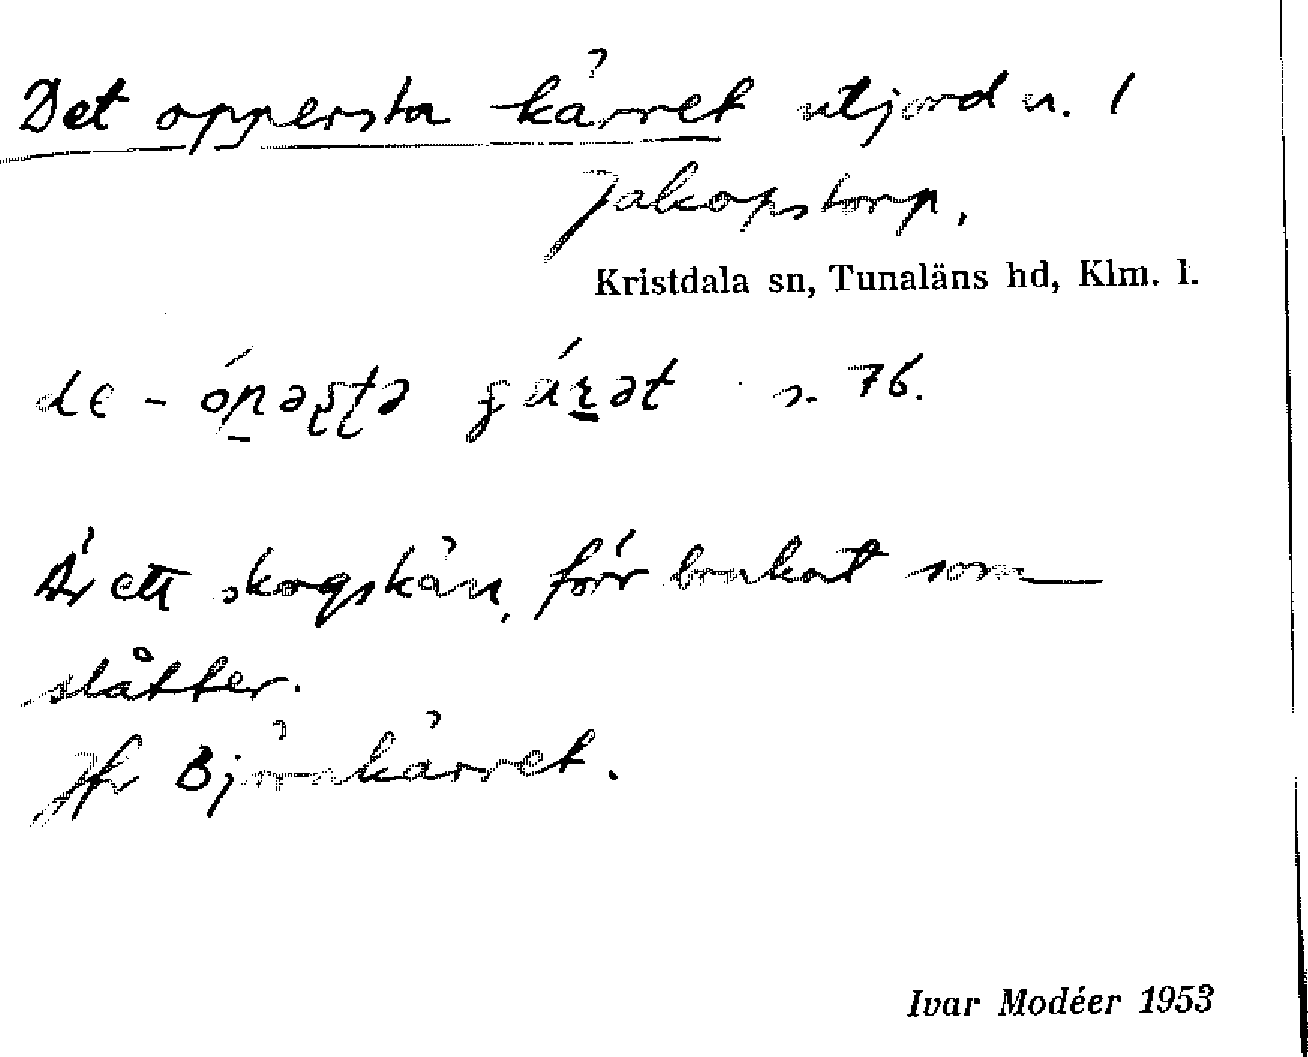 Det oppersta kärret utjord u. 1
Jakopstorp.
Kristdala sn, Tunaläns hd, Klm. l.
s. 76.
Är ett skogskärr, förr brukat som
slåtter.
Jfr Björnkärret.
Ivar Modéer 1953